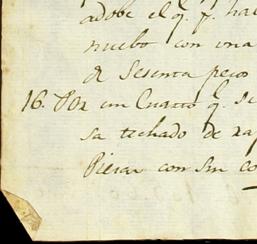 adobe el q. f. ha
nuebo con una
de Sesenta pesos
16. Por un Cuarto q. se
sa techado de za
Piesas con sin co